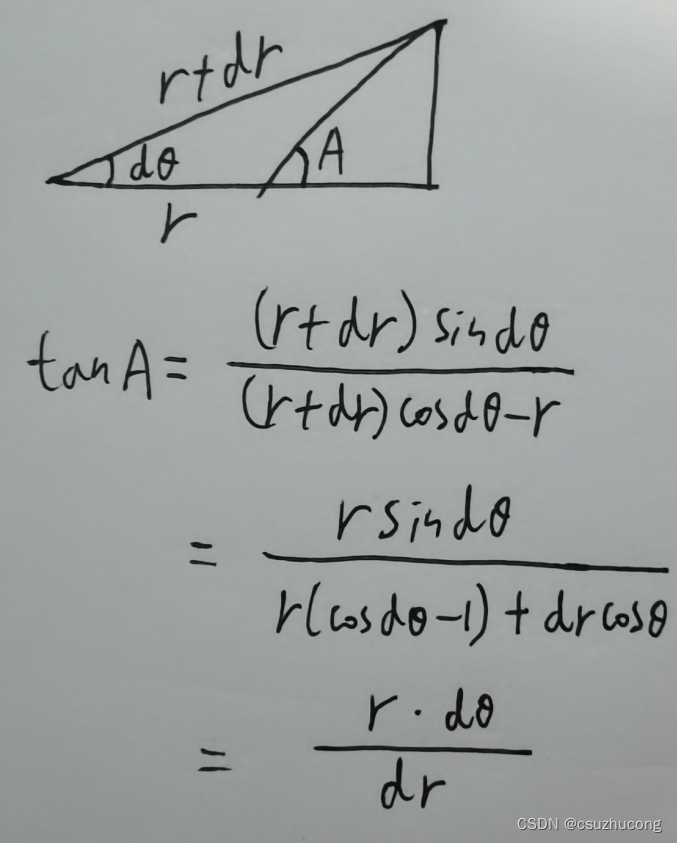 r+dr
dθ
A
r
tanA = \frac{(r+dr) sindθ}{(r+dr)cosdθ-r}
= \frac{rsindθ}{r(cosdθ-1)+drcosθ}
= \frac{r·dθ}{dr}
CSDN @csuzhucong